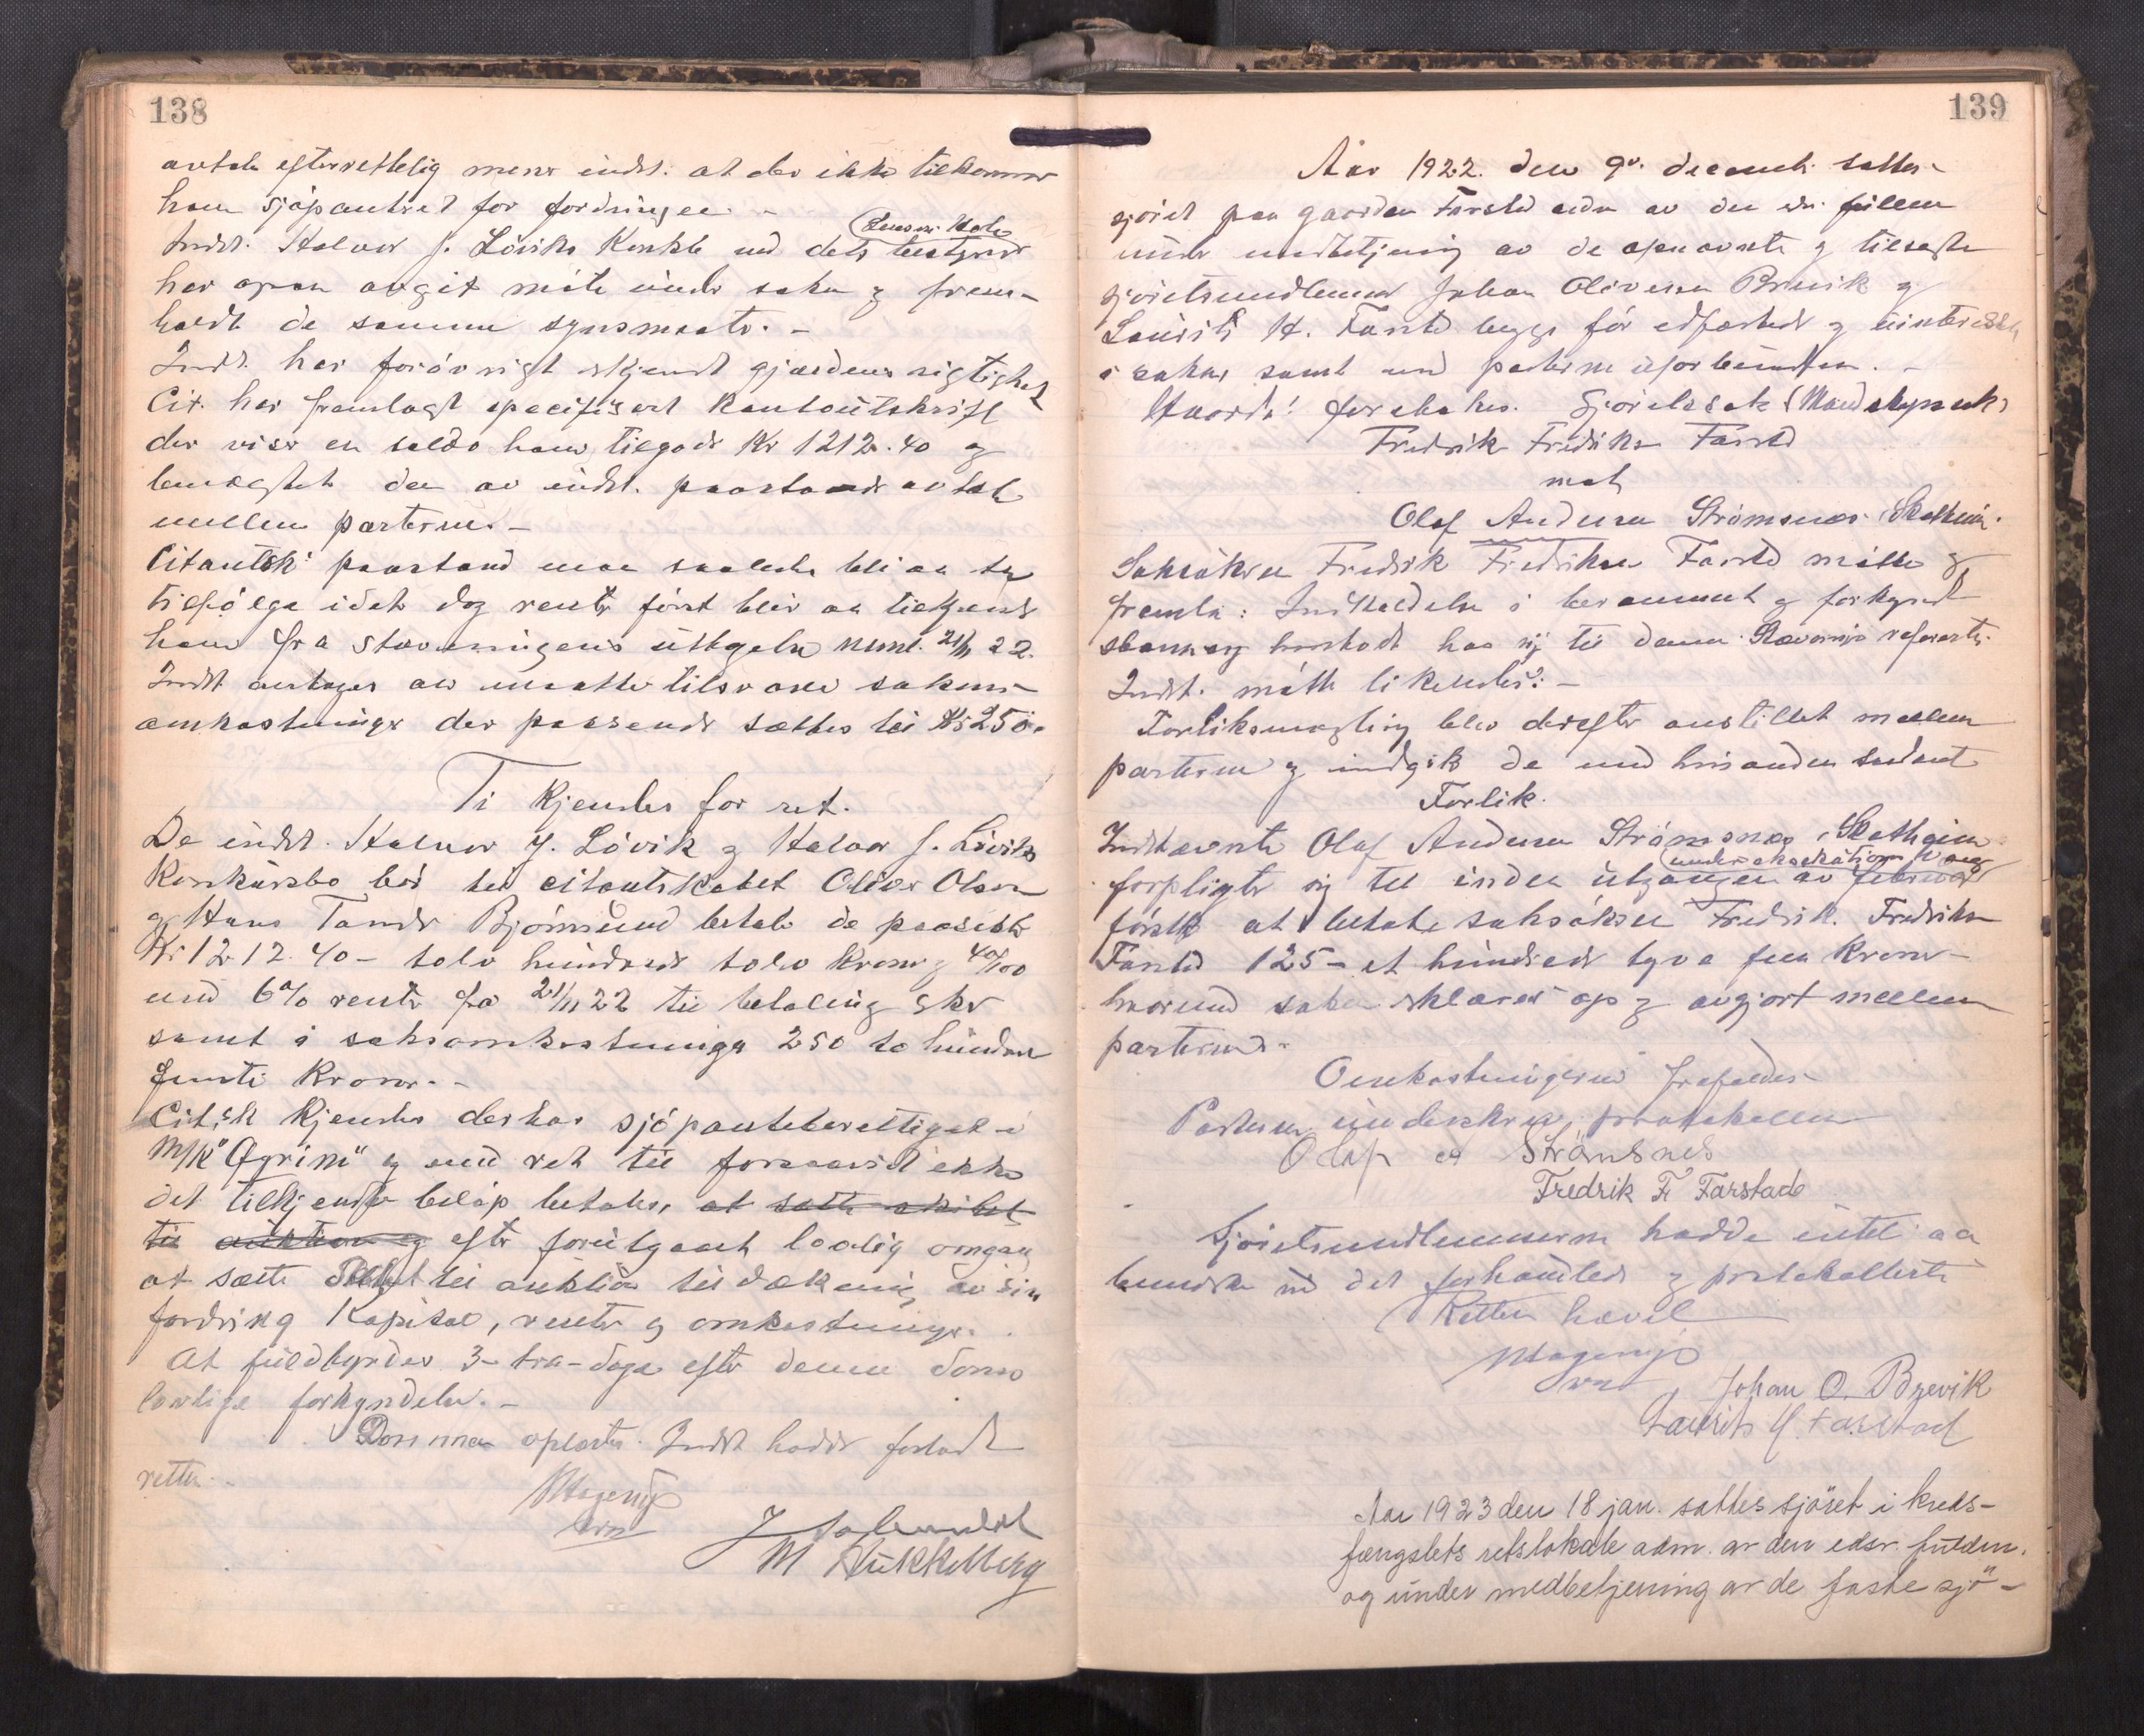 138
avtale efterrettelig mener indst. at der ikke tilkommer
ham sjøpantret for fordringen. -
Indst. Halvor J. Løviks Konkb ved dets bestyrer
har ogsaa avgit møte under saken og frem-
holdt de samme synsmaater. -
Indst. har forøvrigt erkjendt gjældens rigtighet
Cit. har fremlagt specifisert Kontoutskrift
der viser en saldo ham tilgode Kr 1212.40 og
benægtet den av indst. paastaaede avtale
mellem parterne. -
Citantsk. paastand maa saaledes bli aa ta
tilfølge idet dog renter først blir aa tilkjende
ham fra stevningens uttagelse neml. 21/11 22.
Indst antages aa maatte tilsvare sakens
omkostninger der passende sættes til Kr 250.
Ti Kjendes for ret.
De indst. Halvor J. Løvik og Halvor J. Løviks
Konkursbo bør til citantskabet Oliver Olsen
og Hans Tande Bjømsund betale de paaseete
Kr 1212.40 - tolv hundrede tolv kroner 40/100
med 6% renter fra 21/11 22 til betaling sker
samt i saksomkostninger 250 to hundre
femti kroner. -
Citsk Kjendes derhos sjøpanteberettiget i
M/K "Ægrim" og med ret til forsaavidt ikke
det tilkjendte beløp betales, at sætte skibet
til auktion og efter forutgaaet lovlig omgang
at sætte skibet til auktion til dækning av sin
fordring Kapital, renter og omkostninger.
At fuldbyrdes 3 - tre - dage efter denne doms
lovlige forkyndelse. -
Dommen oplæstes. Indst hadde forladt
retten. -
M Rukkelberg
139
Aar 1922 den 9de decemb. sattes
sjøret paa gaarden Farstad adm av den edsv. fullm
under medbetjening av de opnævnte og tilsagte
sjøretsmedlemmer Johan Oliversen Brevik og
Laurits H. Farstad begge før edfæstede og uinteresserte
i saken samt med parterne uforbundne. -
Hvorda! foretokes. Sjøretssak
Fredrik Fredriksen Farstad
mot
Olaf Andersen Strømsnes
Saksøkeren Fredrik Fredriksen Farstad møtte og
fremla: Indkaldelse i berammet og forkyndt
stand og henholdt han sig til denne. Stævningen refereres.
Indst. møtte likeledes: -
Forliksmægling blev derefter anstillet mellem
parterne og indgik de med hinanden saadant
Forlik.
Indstævnte Olaf Andersen Strømsnes
under eksekutions tvang
forpligter sig til inden utgangen av februar
først at betale saksøkeren Fredrik Fredriksen
Farstad 125 - et hundrede tyve fem kroner -
hvormed saken erklæres op og avgjort mellem
parterne. -
Omkostningerne frafaldes -
Parterne underskrev protokollen
Olaf A Strömsnes
Fredrik Fr Farstad
Sjøretsmedlemmerne hadde intet aa
bemerke ved det forhandlede og protokollerte
Retten hævet
Johan O. Brevik
Laurits H. Farstad
Aar 1923 den 18 jan. sattes sjöret i kreds-
fængslets retslokale adm. av den edsv. fuldm.
og under medbetjening av de faste sjö-